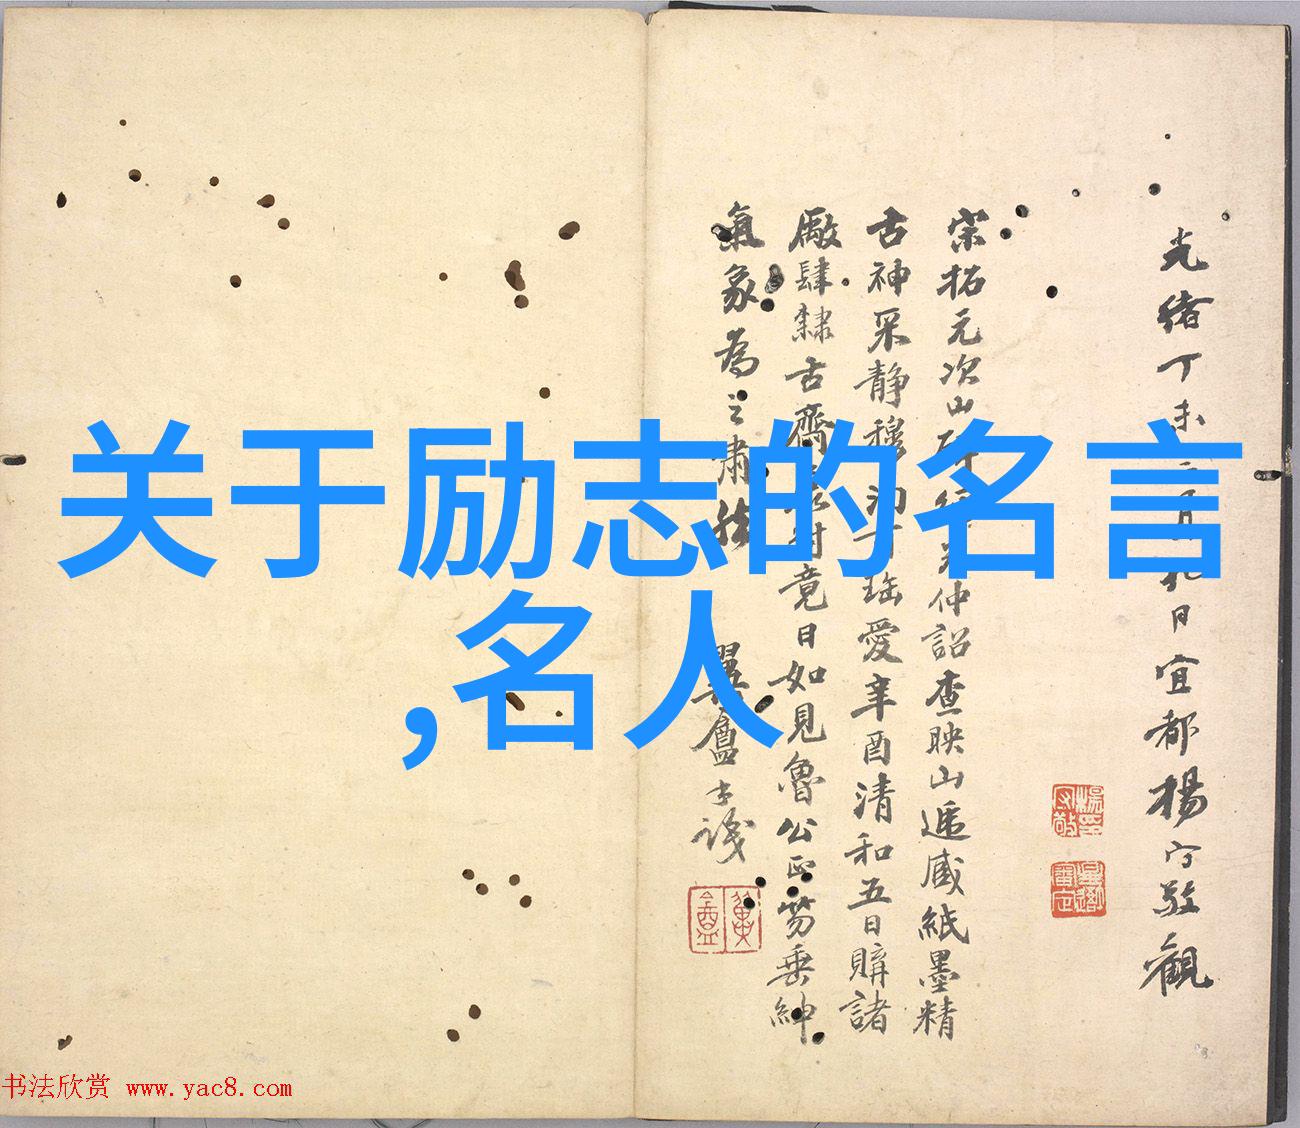 关于励志的名言
,名人
光绪丁未
日宜都楊守敬觀
宋拓元次山
仲詔查映山遞感紙墨精
古神采靜穆
瑤愛辛酉清和五日購諸
廠肆隸古齋
竟日如見魯公正笏垂紳
氣象為之肅然
書法欣赏 www.yac8.com